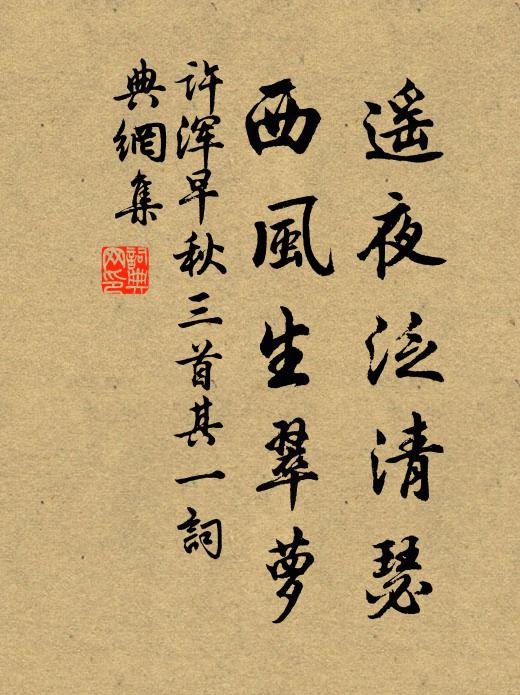 遥夜泛清瑟
西風生翠萝
许浑早秋三首其一詞
典網集
詞典
网印